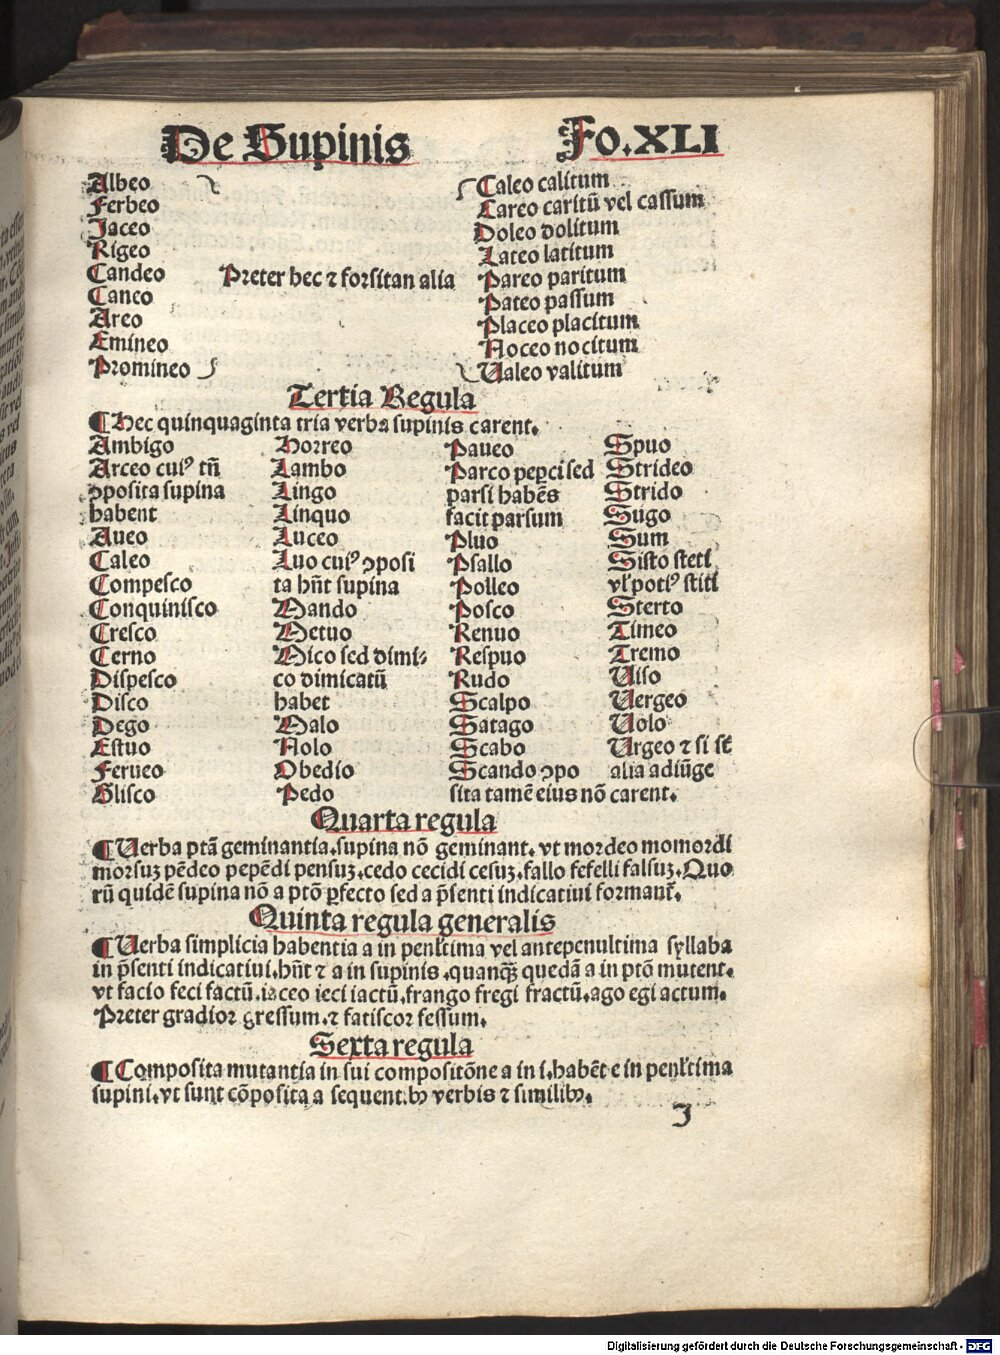 De Supinis Fo.XLI
Albeo
Ferbeo
Jaceo
Rigeo
Candeo
Caneo
Areo
Emineo
Promineo
Preter hec ⁊ forsitan alia
Caleo calitum
Careo caritū vel cassum
Doleo dolitum
Lateo latitum
Pareo paritum
Pateo passum
Placeo placitum
Noceo nocitum
Ualeo valitum
Tertia Regula
¶ Hec quinquaginta tria verba supinis carent.
Ambigo
Arceo cuiꝰ tñ
ꝯposita supina
habent
Aueo
Caleo
Compesco
Conquinisco
Cresco
Cerno
Dispesco
Disco
Dego
Estuo
Ferueo
Glisco
Horreo
Lambo
Lingo
Linquo
Luceo
Luo cuiꝰ ꝯposi
ta hñt supina
Mando
Metuo
Mico sed dimi⸗
co dimicatū
habet
Malo
Nolo
Obedio
Pedo
Paueo
Parco peꝑci sed
parsi habēs
facit parsum
Pluo
Psallo
Polleo
Posco
Renuo
Respuo
Rudo
Scalpo
Satago
Scabo
Scando ꝯpo
sita tamē eius nō carent.
Spuo
Strideo
Strido
Sugo
Sum
Sisto steti
vl̓ potiꝰ stiti
Sterto
Timeo
Tremo
Uiso
Uergeo
Uolo
Urgeo ⁊ si sc̄
alia adiūge
Quarta regula
¶ Uerba ptā geminantia.supina nō geminant. vt mordeo momordi
morsuꝫ pēdeo pepēdi pensuꝫ.cedo cecidi cesuꝫ.fallo fefelli falsuꝫ.Quo
rū quidē supina nō a ptō ꝑfecto sed a p̄senti indicatiui formant̄.
Quinta regula generalis
¶ Uerba simplicia habentia a in penl̓tima vel antepenultima syllaba
in p̄senti indicatiui.hñt ⁊ a in supinis.quanqꝫ quedā a in ptō mutent.
vt facio feci factū.iaceo ieci iactū.frango fregi fractū.ago egi actum.
Preter gradior gressum.⁊ fatiscor fessum.
Sexta regula
¶ Composita mutantia in sui compositōne a in i.habēt e in penl̓tima
supini.vt sunt cōposita a sequent.bꝫ verbis ⁊ similibꝫ.
J
Digitalisierung gefördert durch die Deutsche Forschungsgemeinschaft - DFG